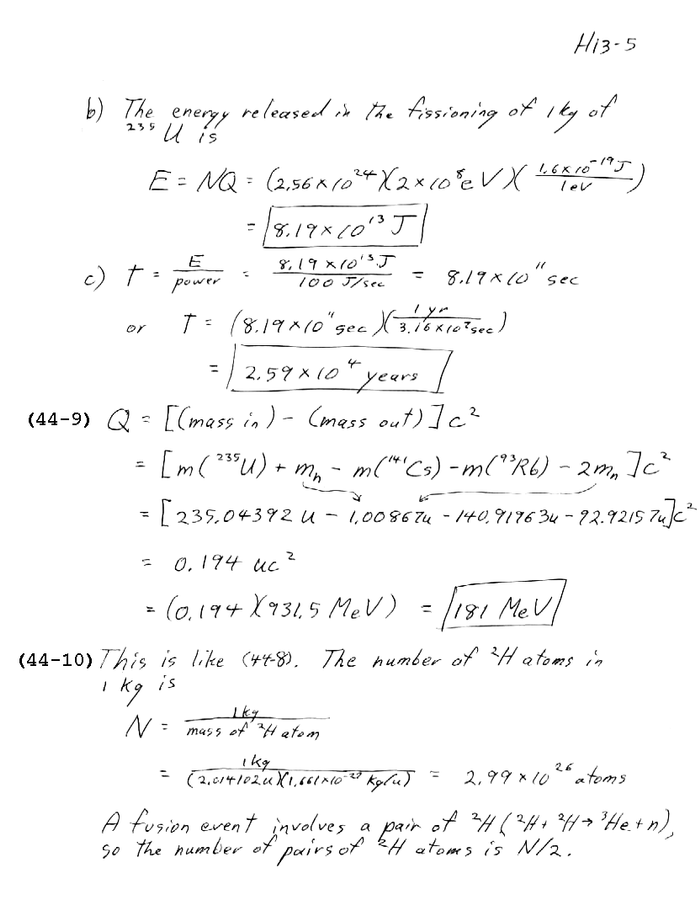 H13-5
b) The energy released in the fissioning of 1 kg of
²³⁵U is
E = NQ = (2.56×10²⁴)(2×10⁸eV)(1.6×10⁻¹⁹J / 1eV)
= 8.19×10¹³ J
c) T = E/power = 8.19×10¹³J / 100 J/sec = 8.19×10¹¹ sec
or T = (8.19×10¹¹ sec)(1 yr / 3.16×10⁷sec)
= 2.59×10⁴ years
(44-9) Q = [(mass in) - (mass out)]c²
= [m(²³⁵U) + mₙ - m(¹⁴¹Cs) - m(⁹³Rb) - 2mₙ]c²
= [235.04392 u - 1.00867u - 140.91963u - 92.92157u]c²
= 0.194 uc²
= (0.194)(931.5 MeV) = 181 MeV
(44-10) This is like (44-8). The number of ²H atoms in
1 kg is
N = 1kg / mass of ²H atom
= 1kg / (2.014102u)(1.661×10⁻²⁷ kg/u) = 2.99×10²⁶ atoms
A fusion event involves a pair of ²H (²H + ²H → ³He + n),
so the number of pairs of ²H atoms is N/2.